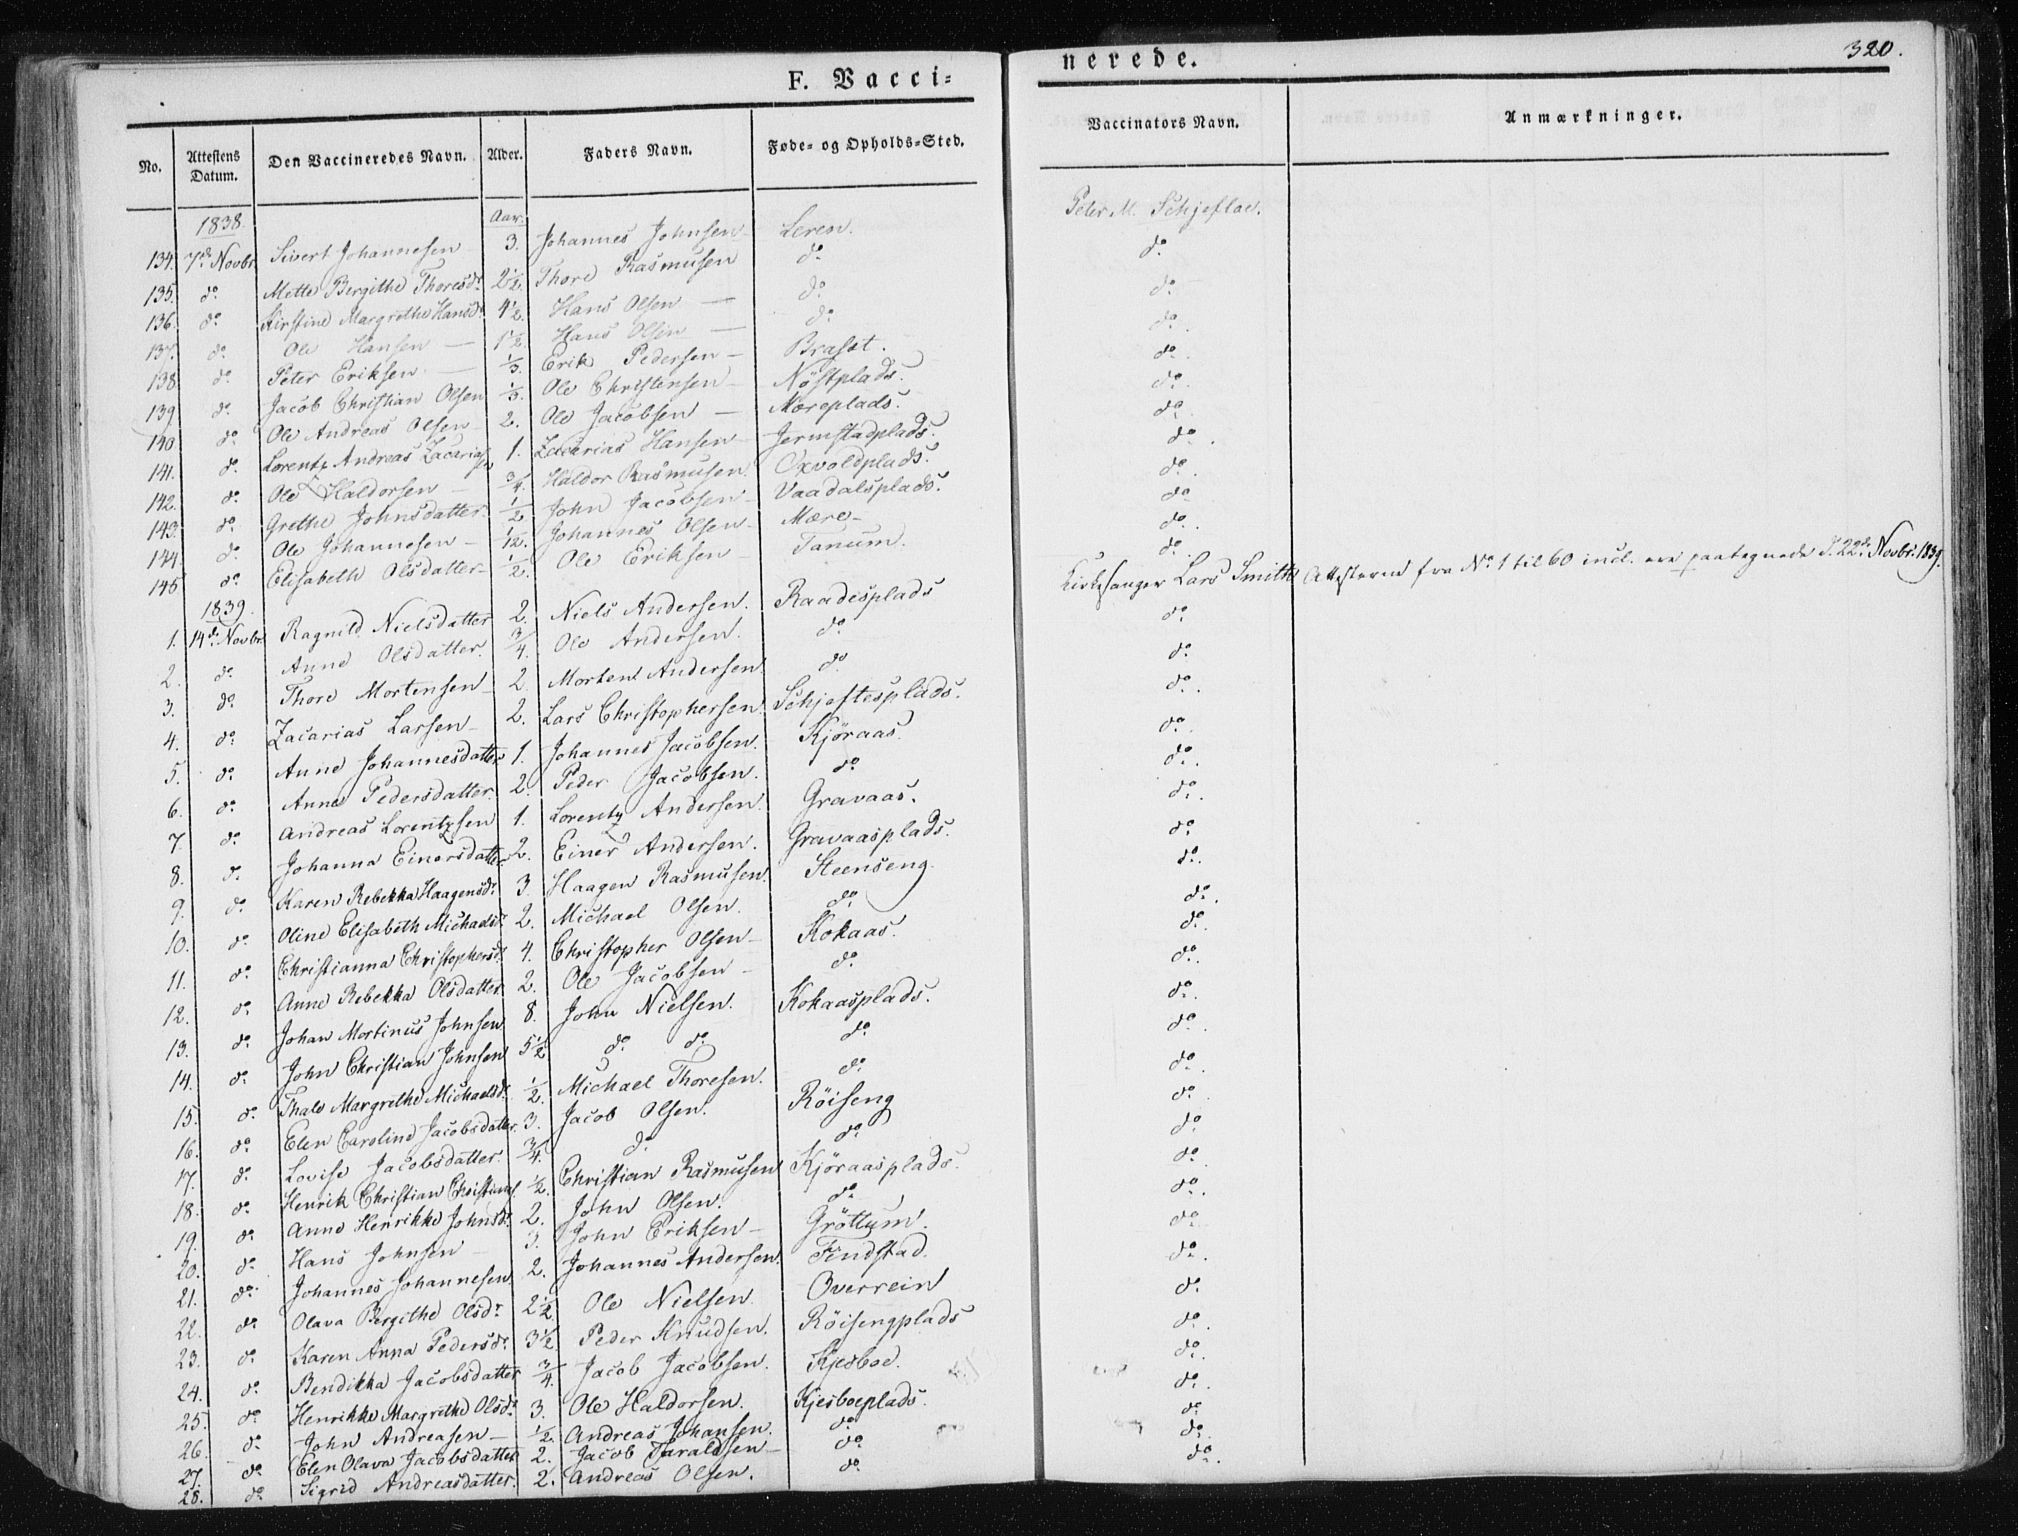 F. Vacci=
nerede.
320.
No. Attestens Datum. Den Vaccineredes Navn. Alder. Faders Navn. Føde= og Opholds=Sted. Vaccinators Navn. Anmærkninger.
1838. Aar.
134. 7de Novbr. Sivert Johannesen 3. Johannes Johnsen Leren. Peter M. Schjeflae.
135. do. Mette Bergithe Thoresdr. 2½. Thore Rasmusen do. do.
136. do. Kirstine Margrethe Hansdr. 4½. Hans Olsen — do. do.
137. do. Ole Hansen — 1½. Hans Olsen — do. do.
138. do. Peter Eriksen. — ⅓. Erik Pedersen — Brasøt. do.
139. do. Jacob Christian Olsen ⅓. Ole Christensen — Nøstplads. do.
140. do. Ole Andreas Olsen 2. Ole Jacobsen — Mæreplads. do.
141. do. Lorentz Andreas Zacariasen 1. Zacarias Hansen — Jermstadplads. do.
142. do. Ole Haldorsen — ¾. Haldor Rasmusen. Oxvoldplads. do.
143. do. Grethe Johnsdatter. ½. John Jacobsen — Vaadalsplads. do.
144. do. Ole Johannesen — 1/12. Johannes Olsen — Mære — do.
145. do. Elisabeth Olsdatter — ½. Ole Eriksen — Tanum. do.
1839.
1. 14de Novbr. Ragnild Nielsdatter 2. Niels Andersen. Raadesplads Kirkesanger Lars Smith Attesterne fra No. 1 til 60 incl. ere paategnede d. 22de Novbr. 1839.
2. do. Anne Olsdatter. ¾. Ole Andersen. do. do.
3. do. Thore Mortensen — 2. Morten Andersen. do. do.
4. do. Zacarias Larsen — 2. Lars Christophersen. Schjeftesplads. do.
5. do. Anne Johannesdatter 1. Johannes Jacobsen. Kjøraas. do.
6. do. Anne Pedersdatter. 2. Peder Jacobsen. do. do.
7. do. Andreas Lorentzsen 1. Lorentz Andersen. Gravaas. do.
8. do. Johanna Einersdatter 2. Einer Andersen. Gravaasplads. do.
9. do. Karen Rebekka Haagensdr. 3. Haagen Rasmusen. Steenseng. do.
10. do. Oline Elisabeth Michaelsdr. 2. Michael Olsen. do. do.
11. do. Christianna Christophersdr. 4. Christopher Olsen — Kokaas. do.
12. do. Anne Rebekka Olsdatter 2. Ole Jacobsen — do. do.
13. do. Johan Mortinus Johnsen 8. John Nielsen. Kokaasplads. do.
14. do. John Christian Johnsen 5½ do. do. do. do.
15. do. Thale Margrethe Michaelsdr. ½. Michael Thoresen. do. do.
16. do. Elen Caroline Jacobsdatter. 3. Jacob Olsen. Röiseng do.
17. do. Lovise Jacobsdatter. ¾. do. do. do.
18. do. Henrik Christian Christians. ½. Christian Rasmusen Kjøraasplads. do.
19. do. Anne Henrikke Johnsdr. 2. John Olsen. do. do.
20. do. Hans Johnsen — 3. John Eriksen — Gröttum. do.
21. do. Johannes Johannesen 2. Johannes Andersen. Findstad. do.
22. do. Olava Bergithe Olsdr. 2½ Ole Nielsen. Overrein do.
23. do. Karen Anna Pedersdr. 3½ Peder Knudsen. Röisengplads do.
24. do. Bendikka Jacobsdatter ¾. Jacob Jacobsen. Kjesboe. do.
25. do. Henrikke Margrethe Olsdr. 3. Ole Haldorsen. Kjesboeplads. do.
26. do. John Andreasen — ½. Andreas Johansen. do. do.
27. do. Elen Olava Jacobsdatter 2. Jacob Taraldsen — do. do.
28. do. Sigrid Andreasdatter. 2. Andreas Olsen. do. do.